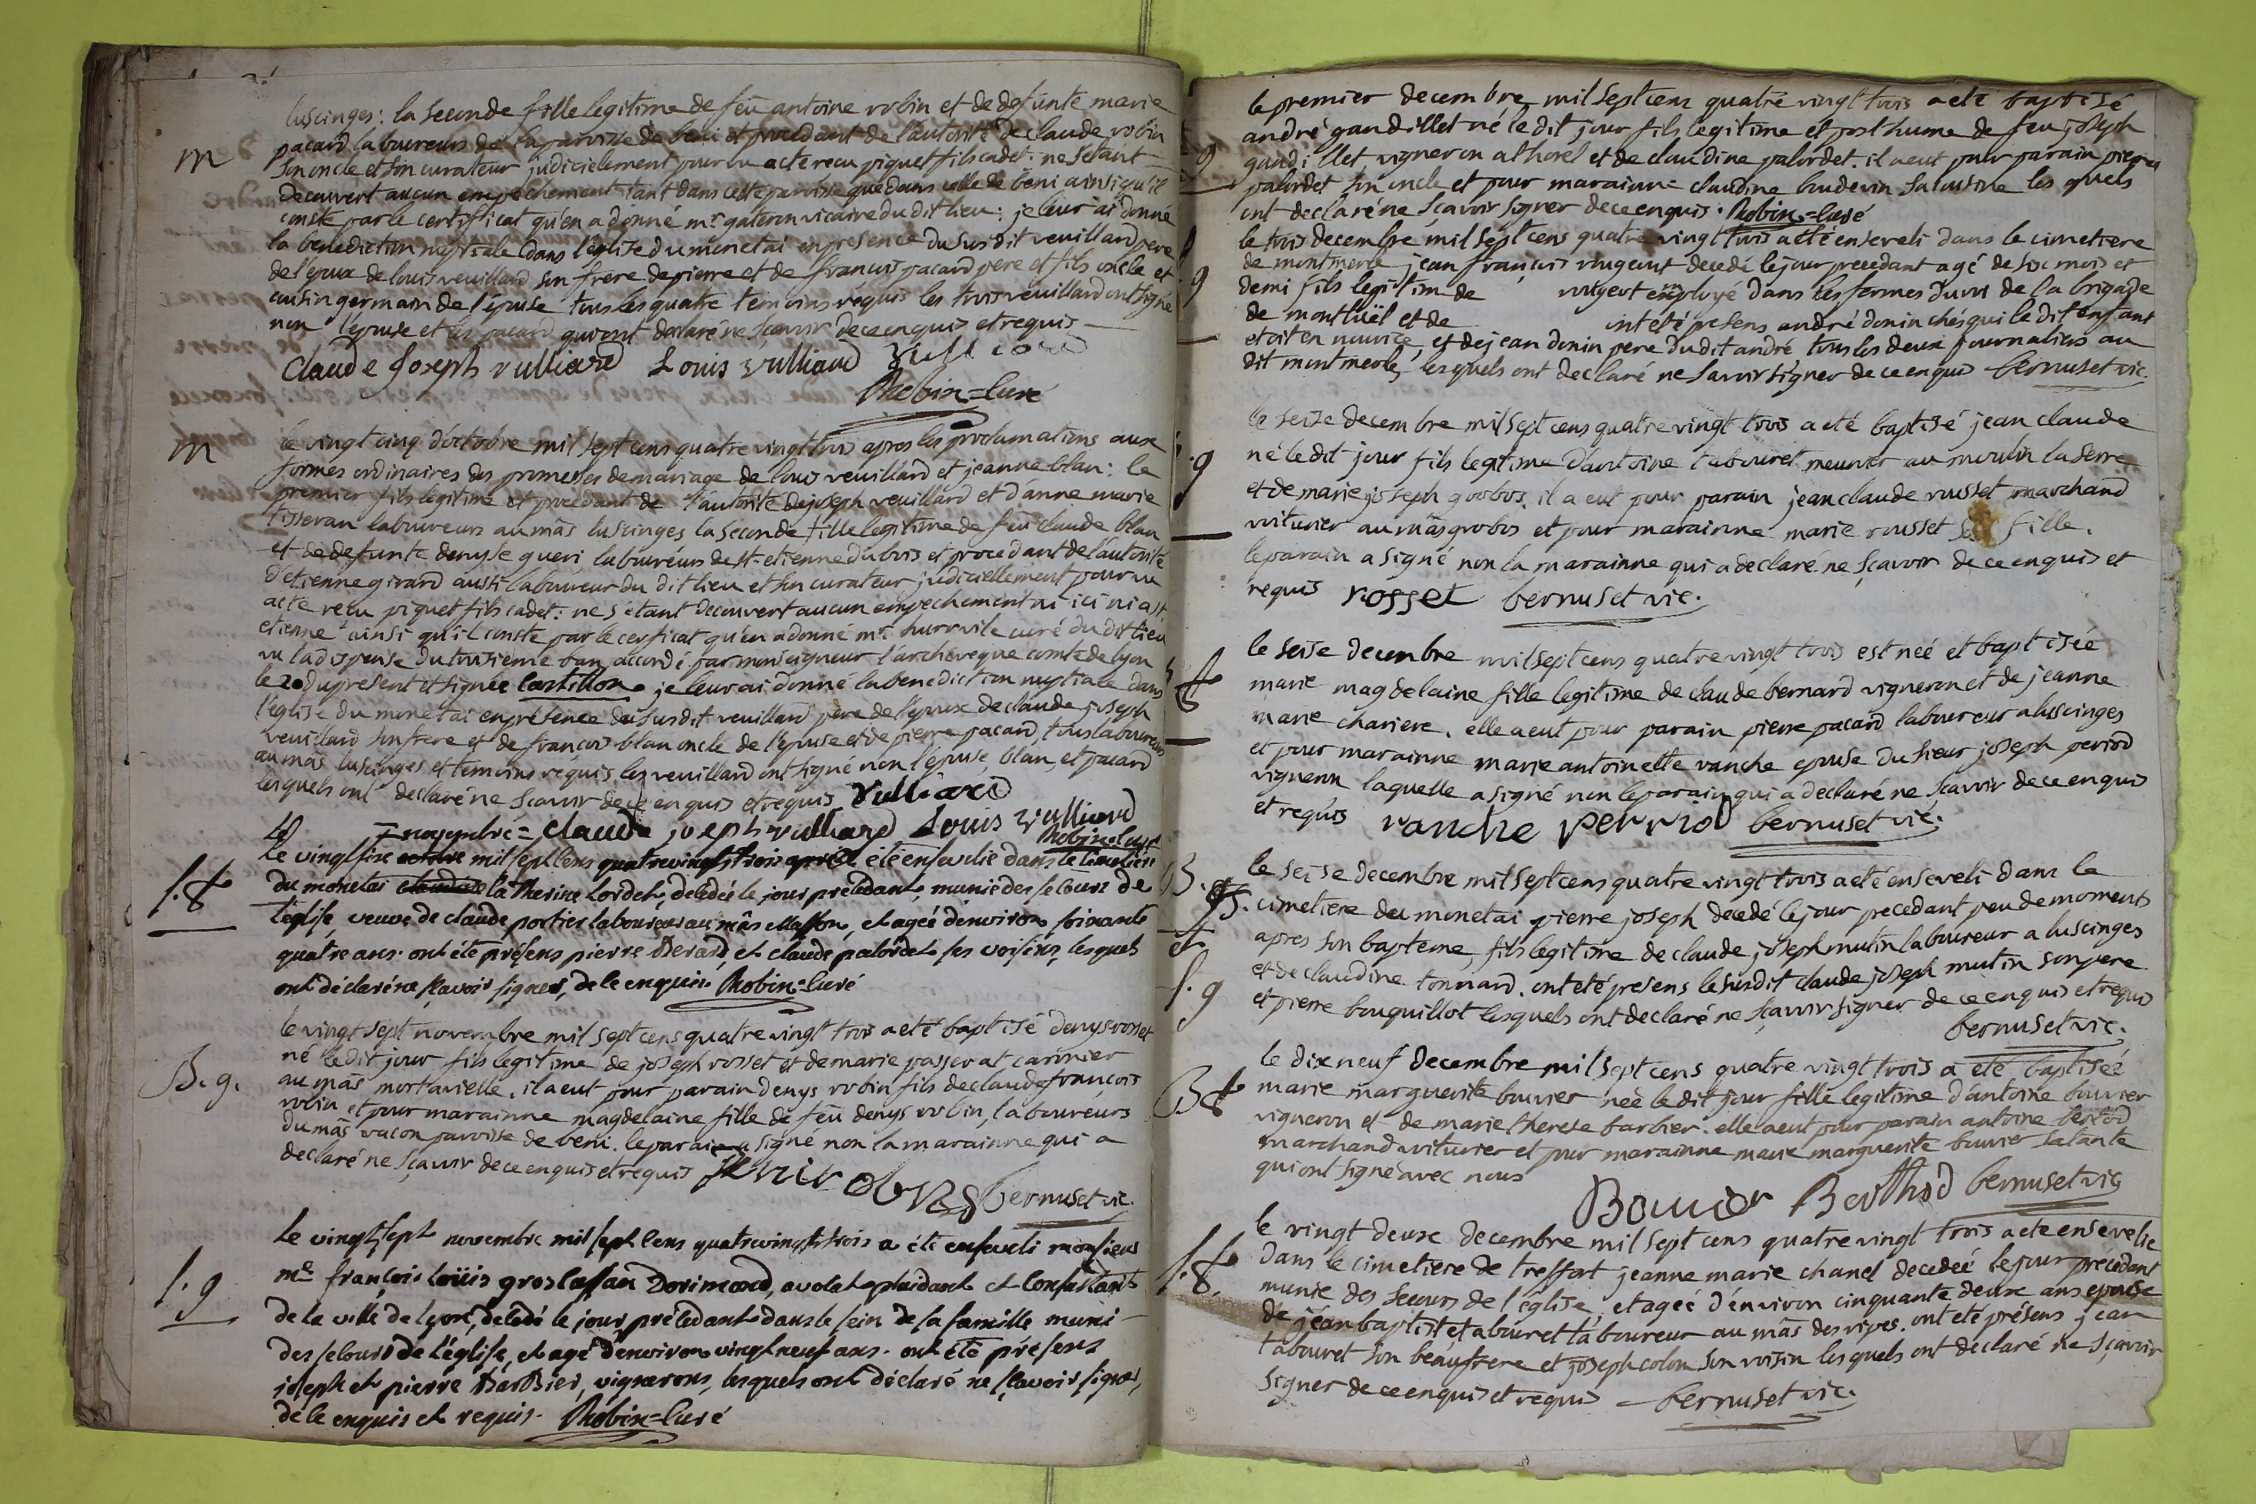 luscinges: la seconde fille legitime de feu antoine robin et de defunte marie
m
pacard laboureurs de la parroisse de beni et procedant de l'autorité de claude robin
son oncle et son curateur judiciellement pourvu acte recu piquet fils cadet: ne s'étant
decouvert aucun empechement tant dans cette parroisse que dans celle de beni ainsi qu'il
conste par le certificat qu'en a donné mr. vicaire du dit lieu: je leur ai donné
la benediction nuptiale dans l'église du monetai en presence du susdit veuillard pere
de l'epoux de louis veuillard son frere de pierre et de francois pacard pere et fils oncle et
cousin germain de l'épouse tous les quatre temoins requis les trois veuillard ont signé
non l'épouse et les pacard qui ont declaré ne sçavoir de ce enquis et requis
Claude joseph vulliard Louis vulliard vulliard
Robin=curé
m
le vingt cinq d'octobre mil sept cens quatre vingt trois apres les proclamations aux
formes ordinaires des promesses de mariage de louis veuillard et jeanne blan: le
premier fils legitime et procedant de l'autorité de joseph veuillard et d'anne marie
tisseran laboureurs au mâs luscinges la seconde fille legitime de feu claude blan
et de defunte denyse queri laboureurs de st. etienne du bois et procedant de l'autorité
d'etienne girard aussi laboureur du dit lieu et son curateur judiciellement pourvu
acte recu piquet fils cadet: ne s'étant decouvert aucun empechement ni ici ni a st
etienne ainsi qu'il conste par le cerficat qu'en a donné mr. curé du dit lieu
vu la dispense du troisieme ban accordé par monseigneur l'archeveque comte de lyon
le 20 du present et signée castillon. je leur ai donné la benediction nuptiale dans
l'église du monetai en presence du susdit veuillard pere de l'epoux de claude joseph
veuillard son frere et de françois blan oncle de l'épouse et de pierre pacard, tous laboureurs
au mâs luscinges et temoins requis les veuillard ont signé non l'épouse, blan, et pacard
lesquels ont declaré ne sçavoir de ce enquis et requis vulliard
claude joseph vulliard Louis vulliard
Robin=curé
= novembre =
Le vingt six octobre mil sept cens quatrevingts trois a été ensevelie dans le cimetiere
du monetai claudine la Therise Cordet, décédée le jour précédant, munie des secours de
s. f
l'église, veuve de claude portier laboureur au mâs , et agée d'environ soixante
quatre ans. ont été présens pierre Berard, et claude palordet ses voisins, lesquels
ont déclaré ne sçavoir signer, de ce enquis. Robin=curé
le vingt sept novembre mil sept cens quatre vingt trois a eté baptisé denys rosset
né le dit jour fils legitime de joseph rosset et de marie passerat
B. g.
au mâs mortarielle. il a eut pour parain denys robin fils de claude françois
robin et pour marainne magdelaine fille de feu denys robin, laboureurs
du mâs vacon parroisse de beni. le parain a signé non la marainne qui a
declaré ne sçavoir de ce enquis et requis robin bernuset vic.
Le vingt sept novembre mil sept cens quatrevingts trois a été enseveli monsieur
s. g
mre françois loüis groslassan Dorimond, avocat plaidant et consultant
de la ville de Lyon, décédé le jour précédant dans le sein de sa famille muni
des secours de l'église, et agé d'environ vingt neuf ans. ont été présens
joseph et pierre Barbier, vignerons, lesquels ont déclaré ne sçavoir signer,
de ce enquis et requis. Robin=curé
le premier decembre mil sept cens quatre vingt trois a eté baptisé
g
andré gandillet né le dit jour fils legitime et posthume de feu joseph
gandillet vigneron a thorel et de claudine palordet. il a eut pour parain pierre
palordet son oncle et pour marainne claudine boudevin sa cousine les quels
ont declaré ne sçavoir signer de ce enquis. Robin=curé
le trois decembre mil sept cens quatre vingt trois a eté enseveli dans le cimetiere
g
de montmerle jean françois rougeout decedé le jour precedant agé de six mois et
demi fils legitim de rougeot employé dans les fermes du roi de la brigade
de montluël et de ont eté presens andré donin chés qui le dit enfant
etoit en nourice, et de jean donin pere du dit andré, tous les deux journaliers au
dit montmerle, lesquels ont declaré ne savoir signer de ce enquis bernuset vic.
le seise decembre mil sept cens quatre vingt trois a eté baptisé jean claude
g
né le dit jour fils legitime d'antoine tabouret meunier au moulin la serre
et de marie joseph grobos. il a eut pour parain jean claude rosset marchand
voiturier au mâs grobos et pour marainne marie rousset sa fille.
le parain a signé non la marainne qui a declaré ne sçavoir de ce enquis et
requis rosset bernuset vic.
le seise decembre mil sept cens quatre vingt trois est née et baptisée
f
marie magdelaine fille legitime de claude bernard vigneron et de jeanne
marie chariere. elle a eut pour parain pierre pacard laboureur a luscinges
et pour marainne marie antoinette vanche epouse du sieur joseph period
vigneron laquelle a signé non le parain qui a declaré ne sçavoir de ce enquis
et requis vanche perriod bernuset vic.
B. g.
le seise decembre mil sept cens quatre vingt trois a eté enseveli dans le
cimetiere du monetai pierre joseph decedé le jour precedant peu de moments
et
apres son bapteme, fils legitime de claude joseph mutin laboureur a luscinges
s. g
et de claudine tonnard. ont eté presens le susdit claude joseph mutin son pere
et pierre bouquillot lesquels ont declaré ne sçavoir signer de ce enquis et requis
bernuset vic.
le dix neuf decembre mil sept cens quatre vingt trois a eté baptisée
B f
marie marguerite bouvier née le dit jour fille legitime d'antoine bouvier
vigneron et de marie therese barbier. elle a eut pour parain antoine bertod
marchand voiturier et pour marainne marie marguerite bouvier sa tante
qui ont signé avec nous
Bouvier Berthod bernuset vic
le vingt deux decembre mil sept cens quatre vingt trois a eté ensevelie
s. f.
dans le cimetiere de treffort jeanne marie chanel decedée le jour précédant
munie des secours de l'église, et agée d'environ cinquante deux ans epouse
de jéan baptiste tabouret laboureur au mâs des ripes. ont eté présens jean
tabouret son beaufrere et joseph colon son voisin lesquels ont declaré ne sçavoir
signer de ce enquis et requis bernuset vic.